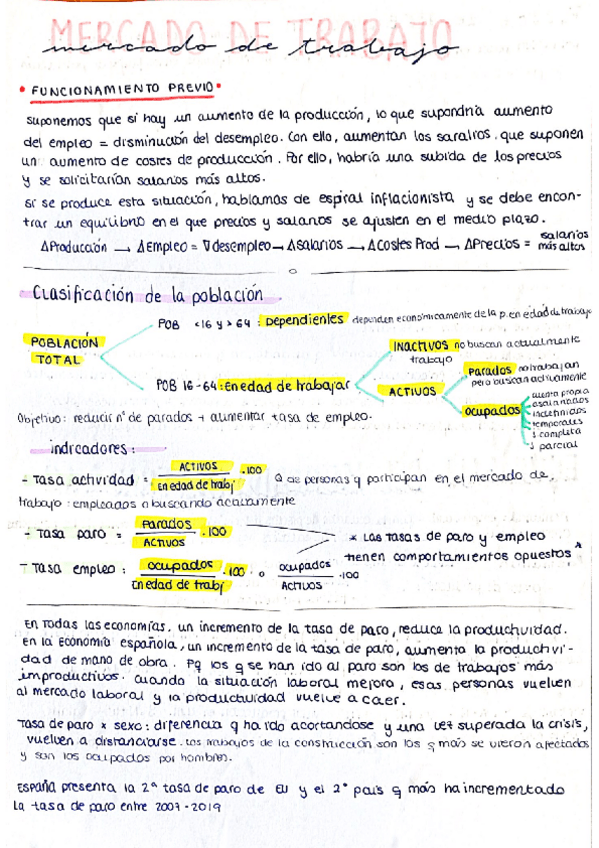 MERCADO DE TRABAJO
mercado de trabajo
• FUNCIONAMIENTO PREVIO •
suponemos que si hay un aumento de la producción, lo que supondría aumento
del empleo = disminución del desempleo. Con ello, aumentan los salarios. que suponen
un aumento de costes de producción. Por ello, habría una subida de los precios
y se solicitarían salarios más altos.
Si se produce esta situación, hablamos de espiral inflacionista y se debe encon-
trar un equilibrio en el que precios y salarios se ajusten en el medio plazo.
∆Producción → ∆Empleo = ∇desempleo → ∆salarios → ∆Costes Prod → ∆Precios = salarios más altos
Clasificación de la población
POB <16 y > 64 : Dependientes dependen económicamente de la p. en edad de trabajo
POBLACIÓN TOTAL
INACTIVOS no buscan actualmente trabajo
POB 16-64: En edad de trabajar
ACTIVOS
Parados no trabajan pero buscan activamente
ocupados
cuenta propia
asalariados
indefinidos
temporales
j completa
j parcial
Objetivo: reducir nº de parados + aumentar tasa de empleo.
indicadores:
- Tasa actividad = ACTIVOS / En edad de trabj · 100 las personas q participan en el mercado de
trabajo: empleados o buscando activamente
- Tasa paro = Parados / ACTIVOS · 100
* Las tasas de paro y empleo
tienen comportamientos opuestos *
- Tasa empleo : ocupados / En edad de trabj · 100 o ocupados / ACTIVOS · 100
En todas las economías, un incremento de la tasa de paro, reduce la productividad.
En la economía española, un incremento de la tasa de paro, aumenta la productivi-
dad de mano de obra. Pq los q se han ido al paro son los de trabajos más
improductivos. Cuando la situación laboral mejora, esas personas vuelven
al mercado laboral y la productividad vuelve a caer.
Tasa de paro x sexo: diferencia q ha ido acortándose y una vez superada la crisis,
vuelven a distanciarse. Los trabajos de la construcción son los q más se vieron afectados
y son los ocupados por hombres.
España presenta la 2ª tasa de paro de EU y el 2º país q más ha incrementado
la tasa de paro entre 2007-2019